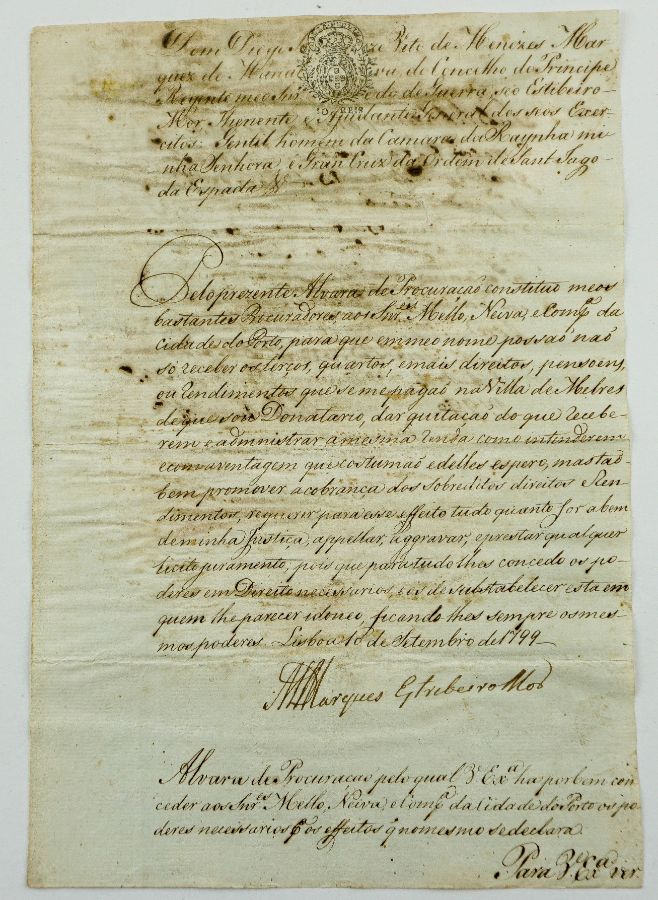 Dom Diogo Vito de Menezes Mar-
quez de Maria do Concelho do Principe
Regente meo Snr do de Guerra, seo Estibeiro
Mor Thenente e Ajudante General dos seos Exer-
citos, Gentil homem da Camara da Raynha mi-
nha Senhora, e Gran Cruz da Ordem de Sant Iago
da Espada &
REIS
Pelo prezente Alvara de Procuração constituo meos
bastantes Procuradores, aos Snres Mello, Neiva, e Compª da
cidade do Porto, para que em meo nome possaõ naõ
só receber os terços, quartos, e mais direitos, pensoens,
ou rendimentos que se me pagaõ na Villa de Melres
de que sou Donatario, dar quitaçaõ do que recebe-
rem e administrar a mesma renda como intenderem
e com aventagem que costumaõ e delles espero, mas taõ
bem promover a cobrança dos sobreditos direitos e ren-
dimentos, requerir para esse effeito tudo quanto for a bem
de minha Justiça, appellar, aggravar, e prestar qualquer
licito juramento, pois que para tudo lhes concedo os po-
deres em Direito necessarios, e os de substabelecer esta em
quem lhe parecer idoneo, ficando lhes sempre os mes-
mos poderes. Lisboa 10 de Setembro de 1799
Marques Estribeiro Mor
Alvara de Procuraçaõ pelo qual V. Exª ha por bem con-
ceder aos Snres Mello, Neiva, e Compª da Cidade do Porto os po-
deres necessarios pª os effeitos q no mesmo se declara.
Para V. Exª ver